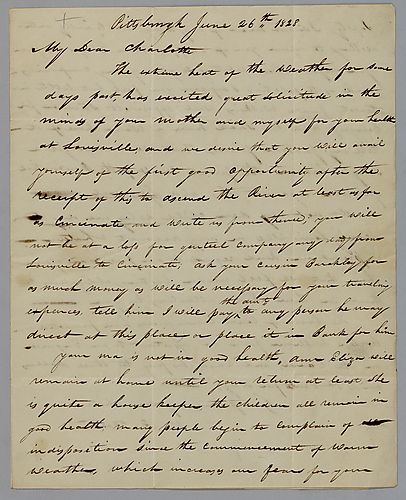 Pittsburgh June 26th 1828
My Dear Charlotte
The extreme heat of the Weather for some
days past, has excited great solicitude in the
minds of your mother and myself for your health
at Louisville, and we desire that you will avail
yourself of the first good opportunity after the
receipt of this to ascend the River at least as far
as Cincinati and write us from thence, you will
not be at a loss for genteel company any day from
Louisville to Cincinati, ask your cousin Barkley for
as much money as will be necessary for your traveling
expences, tell him I will pay the amt to any person he may
direct at this place or place it in Bank for him
your ma is not in good health, Ann Eliza will
remain at home until your return at least. She
is quite a house keeper, the children all remain in
good health many people begin to complain of
indisposition since the commencement of Warm
Weather, which increases our fear for your